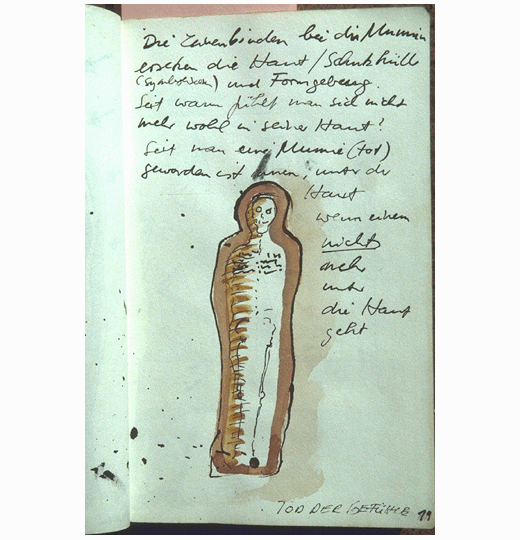 Die Leinenbinden bei der Mumie
ersetzen die Haut / Schutzhülle
(symbolisch) und Formgebung.
Seit wann fühlt man sich nicht
mehr wohl in seiner Haut?
Seit man eine Mumie (tot)
geworden ist innen, unter der
Haut
wenn einem
nicht
mehr
unter
die Haut
geht
TOD DER GEFÜHLE